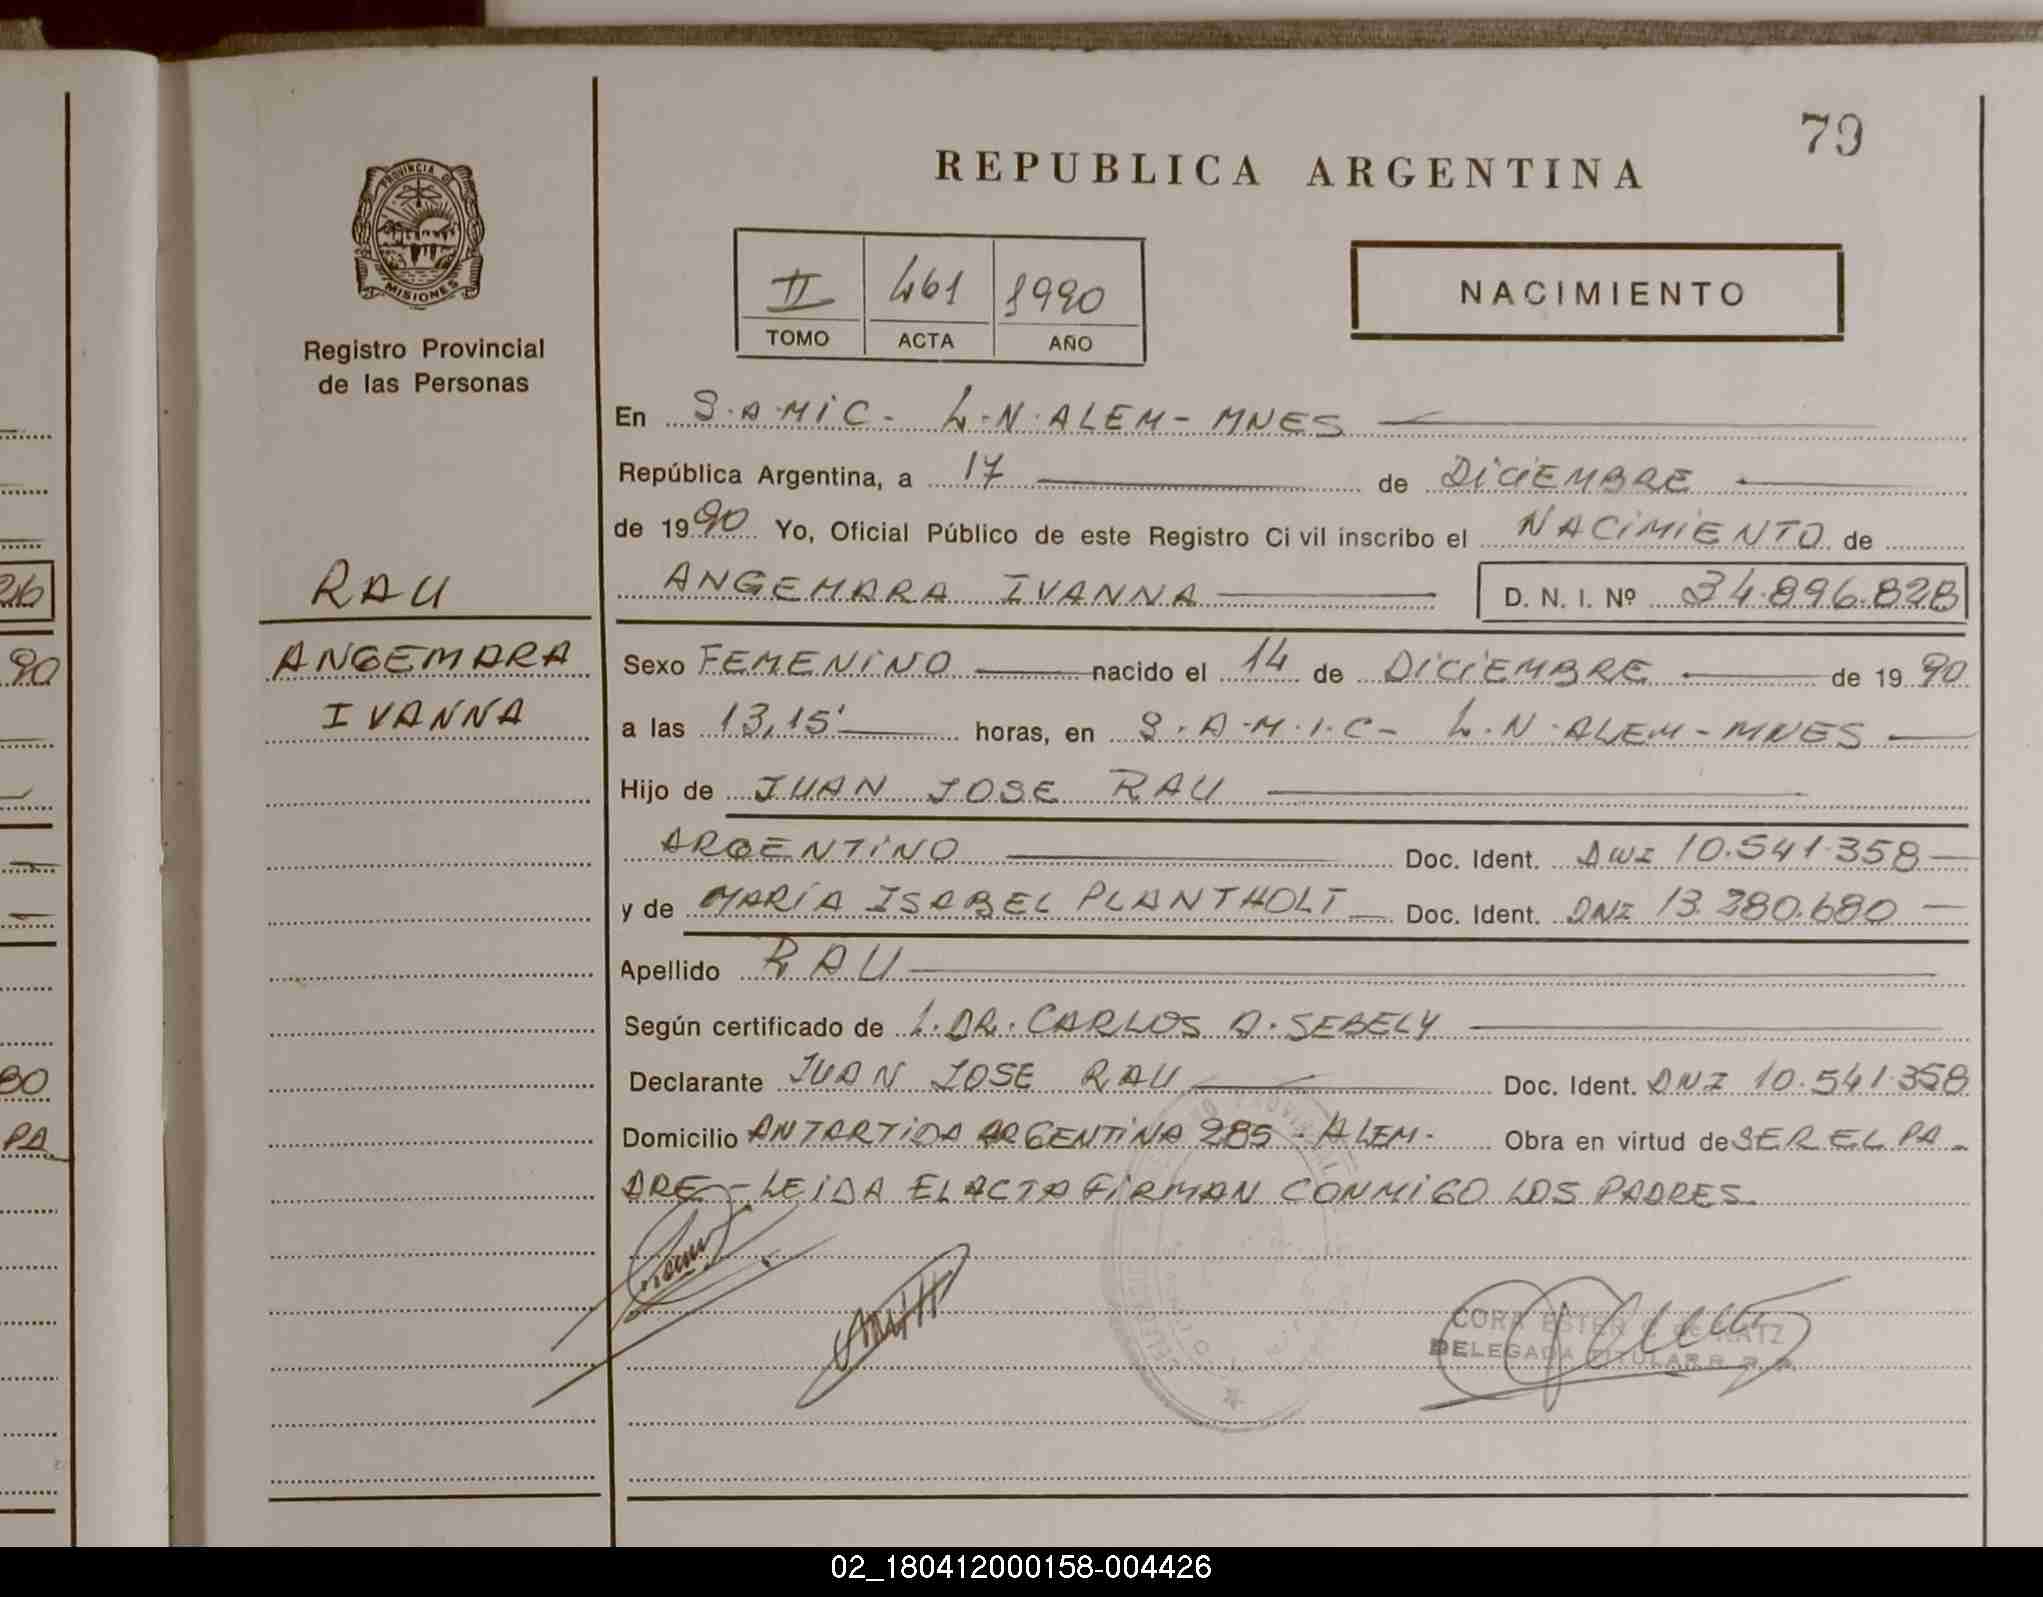 26
90
80
PA
PROVINCIA DE
MISIONES
Registro Provincial
de las Personas
RAU
ANGEMARA
IVANNA
79
REPUBLICA ARGENTINA
II 461 1990
TOMO ACTA AÑO
NACIMIENTO
En S.A.MIC- L.N.ALEM-MNES
República Argentina, a 17 de DICIEMBRE
de 1990 Yo, Oficial Público de este Registro Civil inscribo el NACIMIENTO de
ANGEMARA IVANNA D. N. I. Nº 34.896.828
Sexo FEMENINO nacido el 14 de DICIEMBRE de 1990
a las 13,15' horas, en S.A.M.I.C- L.N.ALEM-MNES
Hijo de JUAN JOSE RAU
ARGENTINO Doc. Ident. DNI 10.541.358
y de MARIA ISABEL PLANTHOLT Doc. Ident. DNI 13.380.680
Apellido RAU
Según certificado de L.DR.CARLOS A.SEBELY
Declarante JUAN JOSE RAU Doc. Ident. DNI 10.541.358
Domicilio ANTARTIDA ARGENTINA 285-ALEM- Obra en virtud de SER EL PA-
DRE-LEIDA EL ACTA FIRMAN CONMIGO LOS PADRES
CORA ESTER DE KATZ
DELEGADA TITULAR
02_180412000158-004426